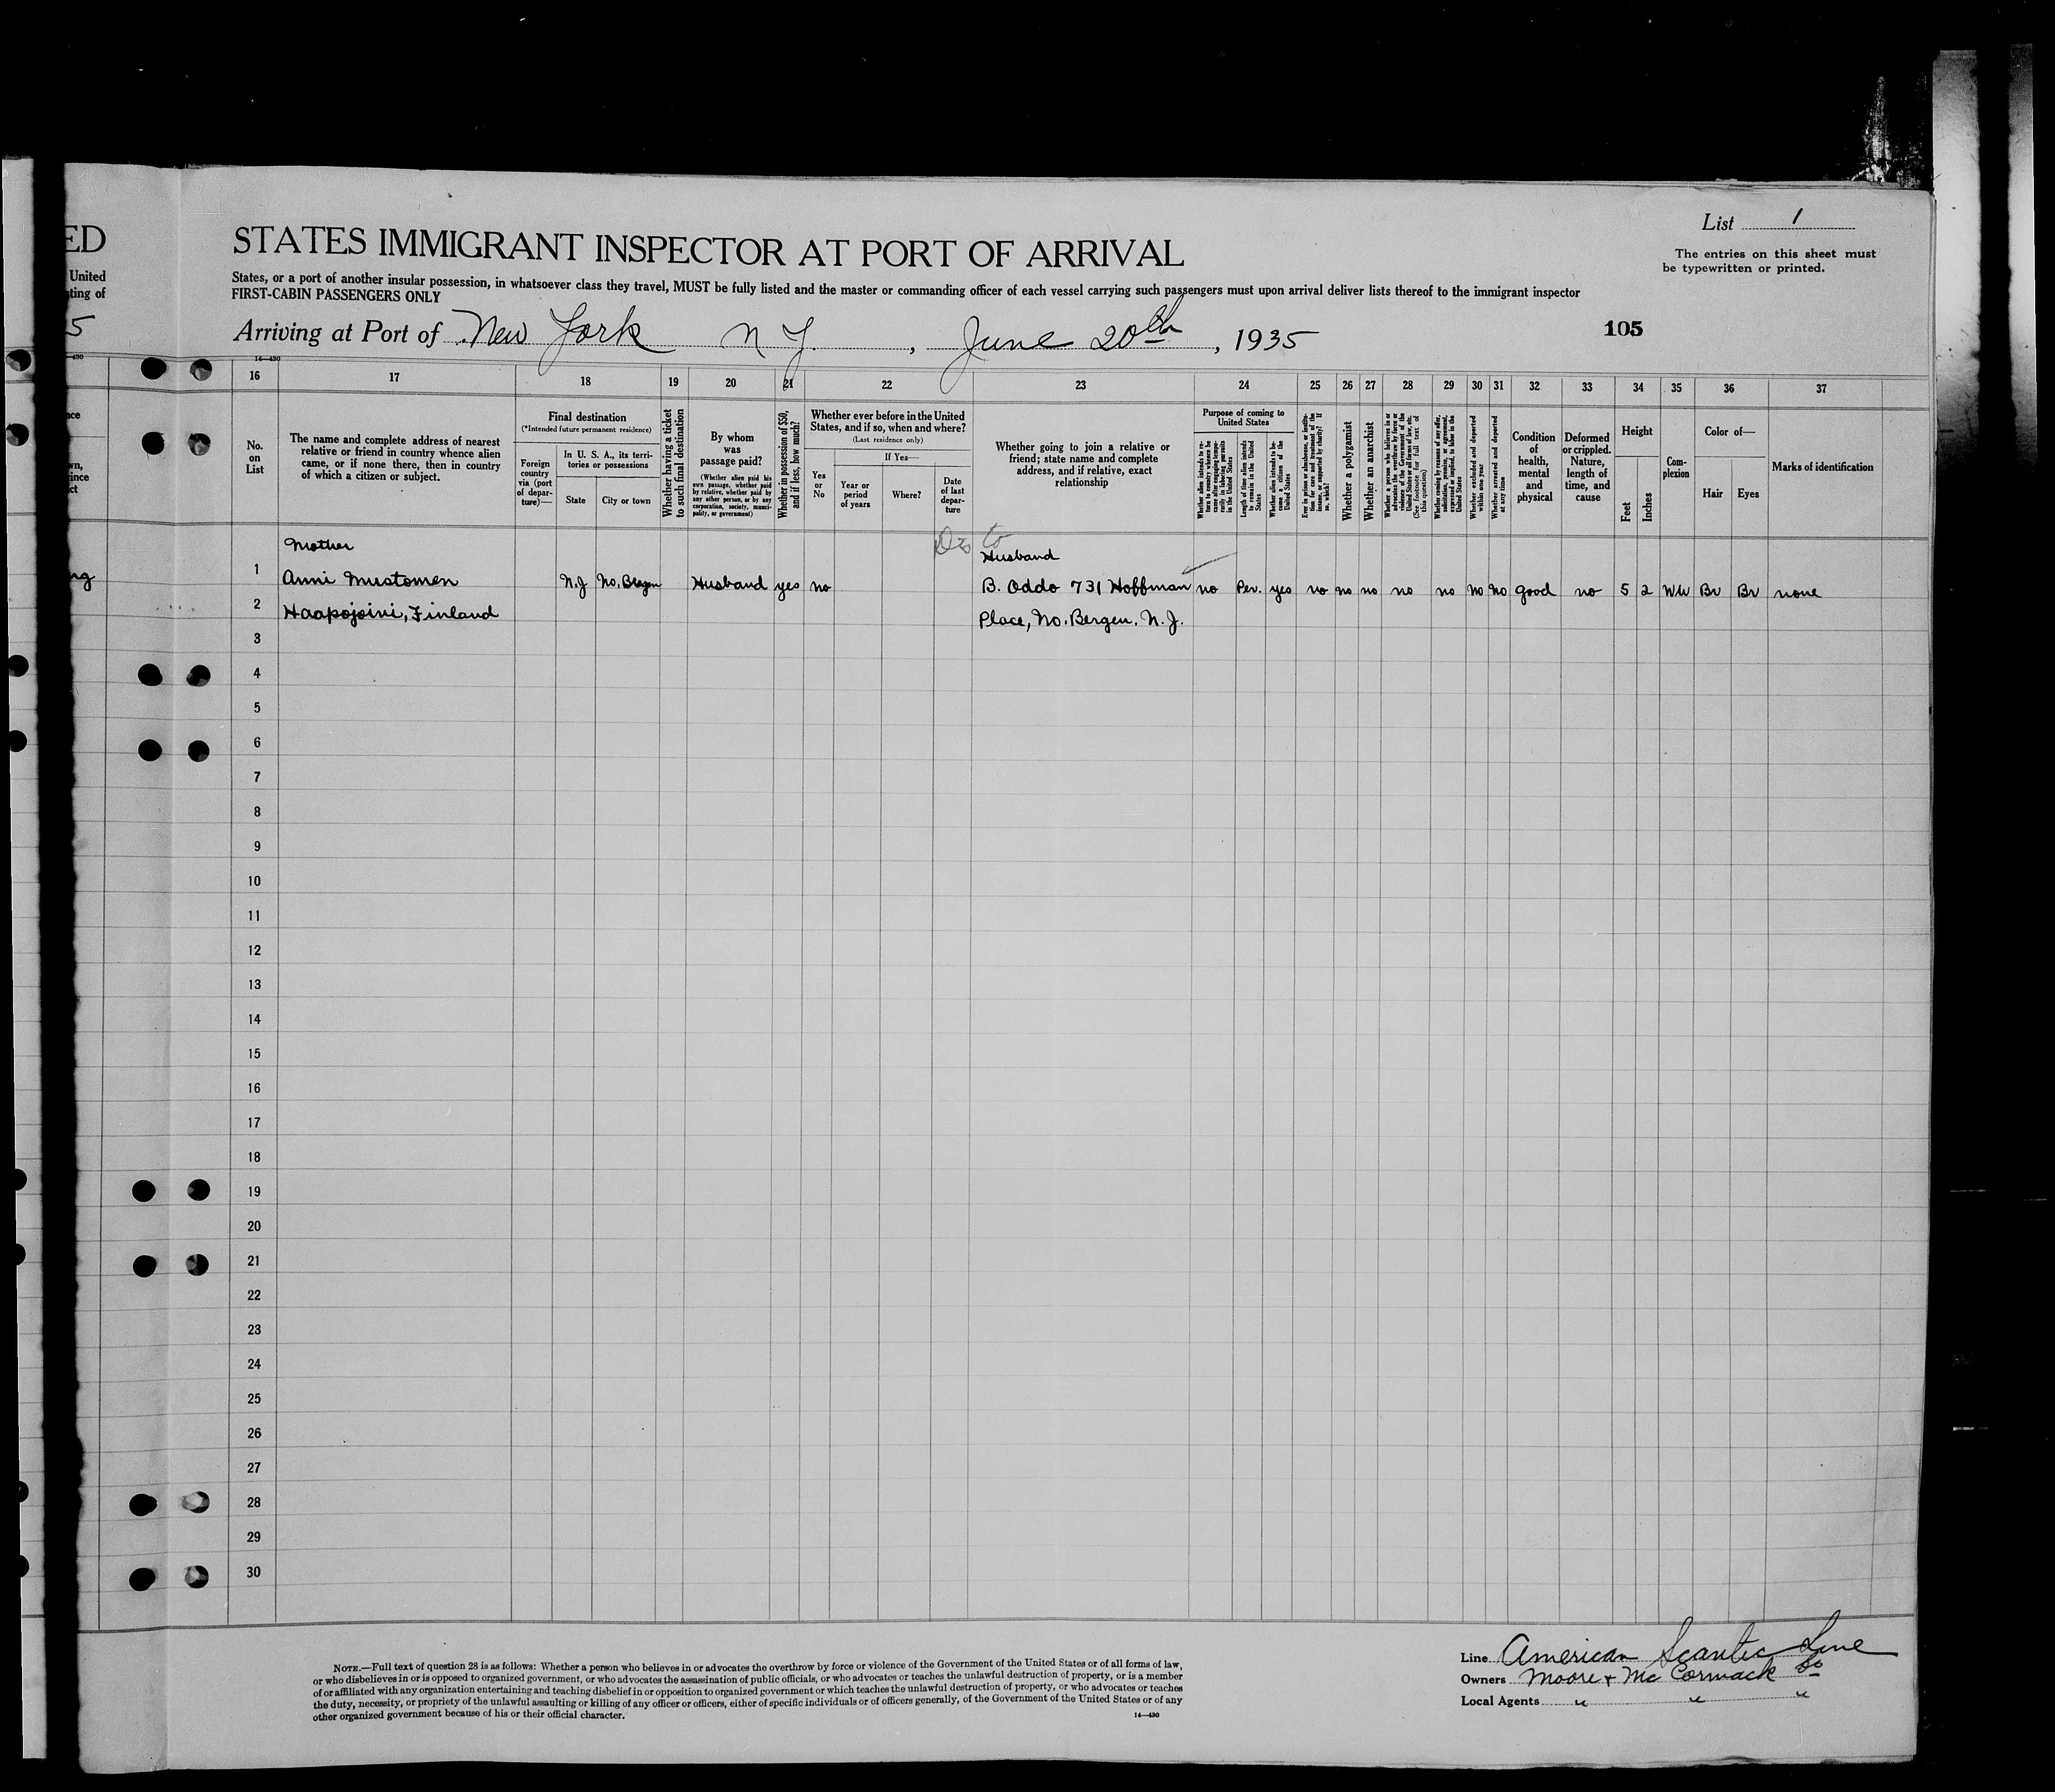 ED
United
ting of
5
List 1
STATES IMMIGRANT INSPECTOR AT PORT OF ARRIVAL
The entries on this sheet must
be typewritten or printed.
States, or a port of another insular possession, in whatsoever class they travel, MUST be fully listed and the master or commanding officer of each vessel carrying such passengers must upon arrival deliver lists thereof to the immigrant inspector
FIRST-CABIN PASSENGERS ONLY
Arriving at Port of New York N Y. , June 20th , 1935
105
14—430
16 17 18 19 20 21 22 23 24 25 26 27 28 29 30 31 32 33 34 35 36 37
No.
on
List
The name and complete address of nearest
relative or friend in country whence alien
came, or if none there, then in country
of which a citizen or subject.
Final destination
(*Intended future permanent residence)
Foreign
country
via (port
of depar-
ture)—
In U. S. A., its terri-
tories or possessions
State
City or town
Whether having a ticket
to such final destination
By whom
was
passage paid?
(Whether alien paid his
own passage, whether paid
by relative, whether paid by
any other person, or by any
corporation, society, munici-
pality, or government)
Whether in possession of $50,
and if less, how much?
Whether ever before in the United
States, and if so, when and where?
(Last residence only)
Yes
or
No
If Yes—
Year or
period
of years
Where?
Date
of last
depar-
ture
Whether going to join a relative or
friend; state name and complete
address, and if relative, exact
relationship
Purpose of coming to
United States
Whether alien intends to re-
turn to country whence he
came after engaging tempo-
rarily in laboring pursuits
in the United States
Length of time alien intends
to remain in the United
States
Whether alien intends to be-
come a citizen of the
United States
Ever in prison or almshouse, or institu-
tion for care and treatment of the
insane, or supported by charity? If
so, which?
Whether a polygamist
Whether an anarchist
Whether a person who believes in or
advocates the overthrow by force or
violence of the Government of the
United States or all forms of law, etc.
(See footnote for full text of
this question)
Whether coming by reasons of any offer,
solicitation, promise, or agreement,
expressed or implied, to labor in the
United States
Whether excluded and deported
within one year
Whether arrested and deported
at any time
Condition
of
health,
mental
and
physical
Deformed
or crippled.
Nature,
length of
time, and
cause
Height
Feet
Inches
Com-
plexion
Color of—
Hair
Eyes
Marks of identification
Mother
Husband
1 Anni Mustomen N.J No. Bergen Husband yes no B. Oddo 731 Hoffman no Per. yes no no no no no No No good no 5 2 Br Br none
2 Haapojoini, Finland Place, No. Bergen, N.J.
3
4
5
6
7
8
9
10
11
12
13
14
15
16
17
18
19
20
21
22
23
24
25
26
27
28
29
30
NOTE.—Full text of question 28 is as follows: Whether a person who believes in or advocates the overthrow by force or violence of the Government of the United States or of all forms of law,
or who disbelieves in or is opposed to organized government, or who advocates the assassination of public officials, or who advocates or teaches the unlawful destruction of property, or is a member
of or affiliated with any organization entertaining and teaching disbelief in or opposition to organized government or which teaches the unlawful destruction of property, or who advocates or teaches
the duty, necessity, or propriety of the unlawful assaulting or killing of any officer or officers, either of specific individuals or of officers generally, of the Government of the United States or of any
other organized government because of his or their official character.
14—430
Line American Scantic Line
Owners Moore & Mc Cormack Co
Local Agents " " "